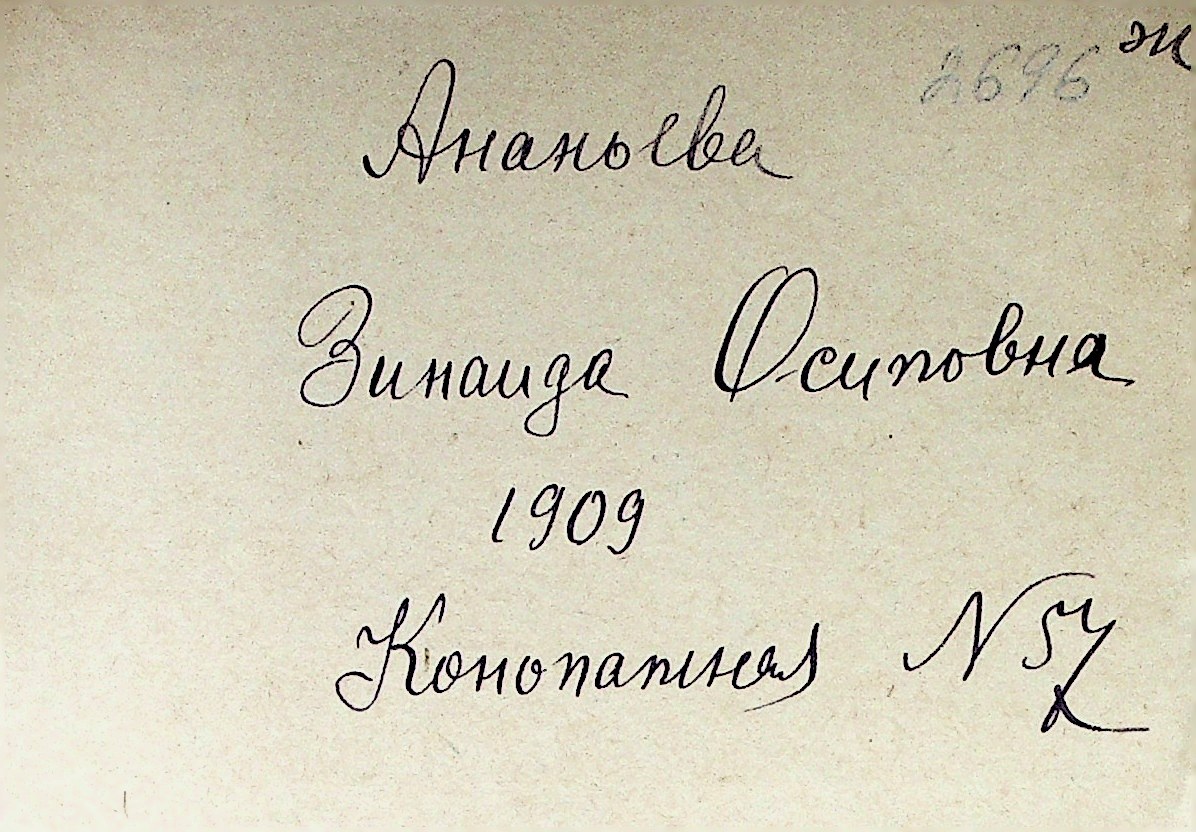 2696 ж
Ананьева
Зинаида Осиповна
1909
Конопатная N 57